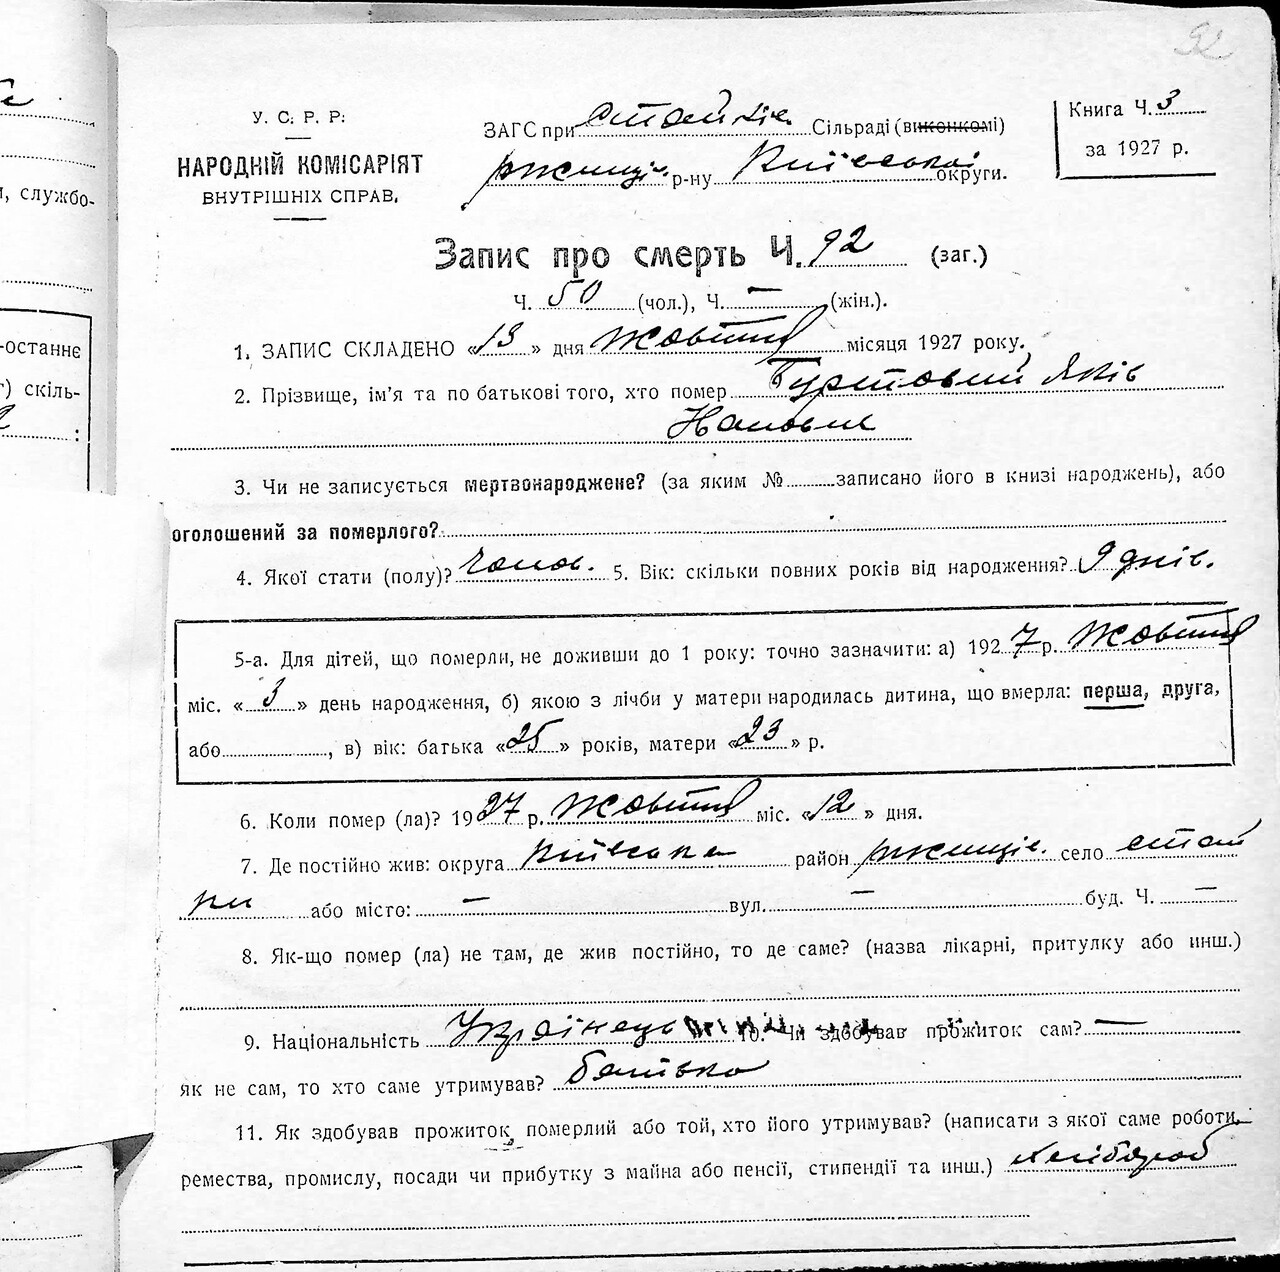 92
У. С. Р. Р.
НАРОДНІЙ КОМІСАРІЯТ
ВНУТРІШНІХ СПРАВ.
ЗАГС при Стайків. Сільраді (виконкомі)
Ржищів. р-ну Київської округи.
Книга Ч. 3
за 1927 р.
Запис про смерть Ч. 92 (заг.)
Ч. 50 (чол.), Ч. — (жін.).
1. ЗАПИС СКЛАДЕНО «13» дня Жовтня місяця 1927 року.
2. Прізвище, ім'я та по батькові того, хто помер Гуртовий Яків
3. Чи не записується мертвонароджене? (за яким № записано його в книзі народжень), або
оголошений за померлого?
4. Якої стати (полу)? чолов. 5. Вік: скільки повних років від народження? 9 днів.
5-а. Для дітей, що померли, не доживши до 1 року: точно зазначити: а) 1927 р. Жовтня
міс. «3» день народження, б) якою з лічби у матери народилась дитина, що вмерла: перша, друга,
або , в) вік: батька «25» років, матери «23» р.
6. Коли помер (ла)? 1927 р. Жовтня міс. «12» дня.
7. Де постійно жив: округа Київська район Ржищів. село Стай
ки або місто: — вул. — буд. Ч. —
8. Як-що помер (ла) не там, де жив постійно, то де саме? (назва лікарні, притулку або инш.)
9. Національність Українець 10. Чи здобував прожиток сам? —
як не сам, то хто саме утримував? батько
11. Як здобував прожиток померлий або той, хто його утримував? (написати з якої саме роботи,
ремества, промислу, посади чи прибутку з майна або пенсії, стипендії та инш.) хлібороб
, службо-
-останнє
) скіль-
: